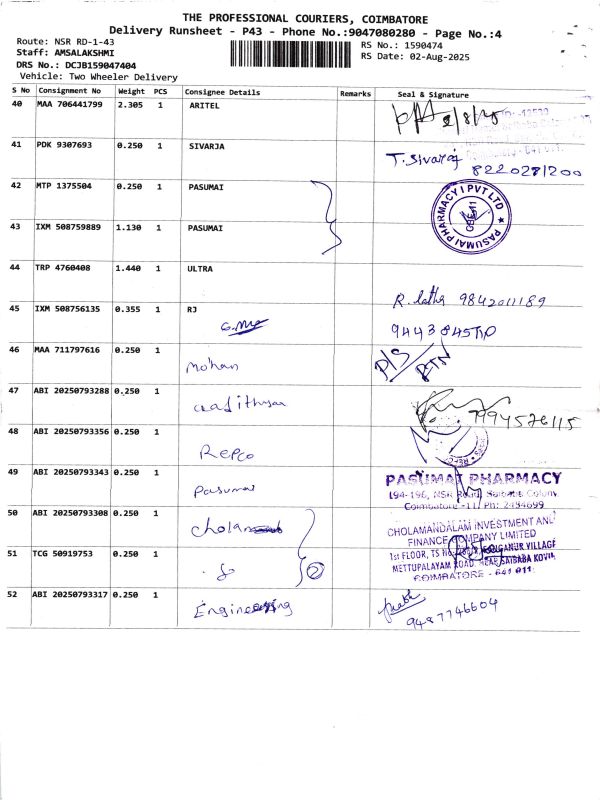 THE PROFESSIONAL COURIERS, COIMBATORE
Delivery Runsheet - P43 - Phone No.:9047080280 - Page No.:4
Route: NSR RD-1-43
RS No.: 1590474
Staff: AMSALAKSHMI
RS Date: 02-Aug-2025
DRS No.: DCJB159047404
Vehicle: Two Wheeler Delivery
S No Consignment No Weight PCS Consignee Details Remarks Seal & Signature
40 MAA 706441799 2.305 1 ARITEL
2/8/25
41 PDK 9307693 0.250 1 SIVARJA
T. Sivaraj
8220271200
42 MTP 1375504 0.250 1 PASUMAI
PASUMAI PHARMACY I PVT LTD
CBE-11
43 IXM 508759889 1.130 1 PASUMAI
44 TRP 4760408 1.440 1 ULTRA
R. latha 9842011189
45 IXM 508756135 0.355 1 RJ
46 MAA 711797616 0.250 1 mohan
D/S
RTN
47 ABI 20250793288 0.250 1 aadithyaa
7994526115
48 ABI 20250793356 0.250 1 REPCO
49 ABI 20250793343 0.250 1 Pasumai
PASUMAI PHARMACY
194-196, NSR Road, Saibaba Colony
Coimbatore -11 Ph: 2434699
50 ABI 20250793308 0.250 1 Chola
CHOLAMANDALAM INVESTMENT AND
FINANCE COMPANY LIMITED
51 TCG 50919753 0.250 1
②
1st FLOOR, TS VILLAGE
METTUPALAYAM ROAD, NEAR SAIBABA KOVIL
COIMBATORE - 641 011
52 ABI 20250793317 0.250 1 Engineering
9487746604